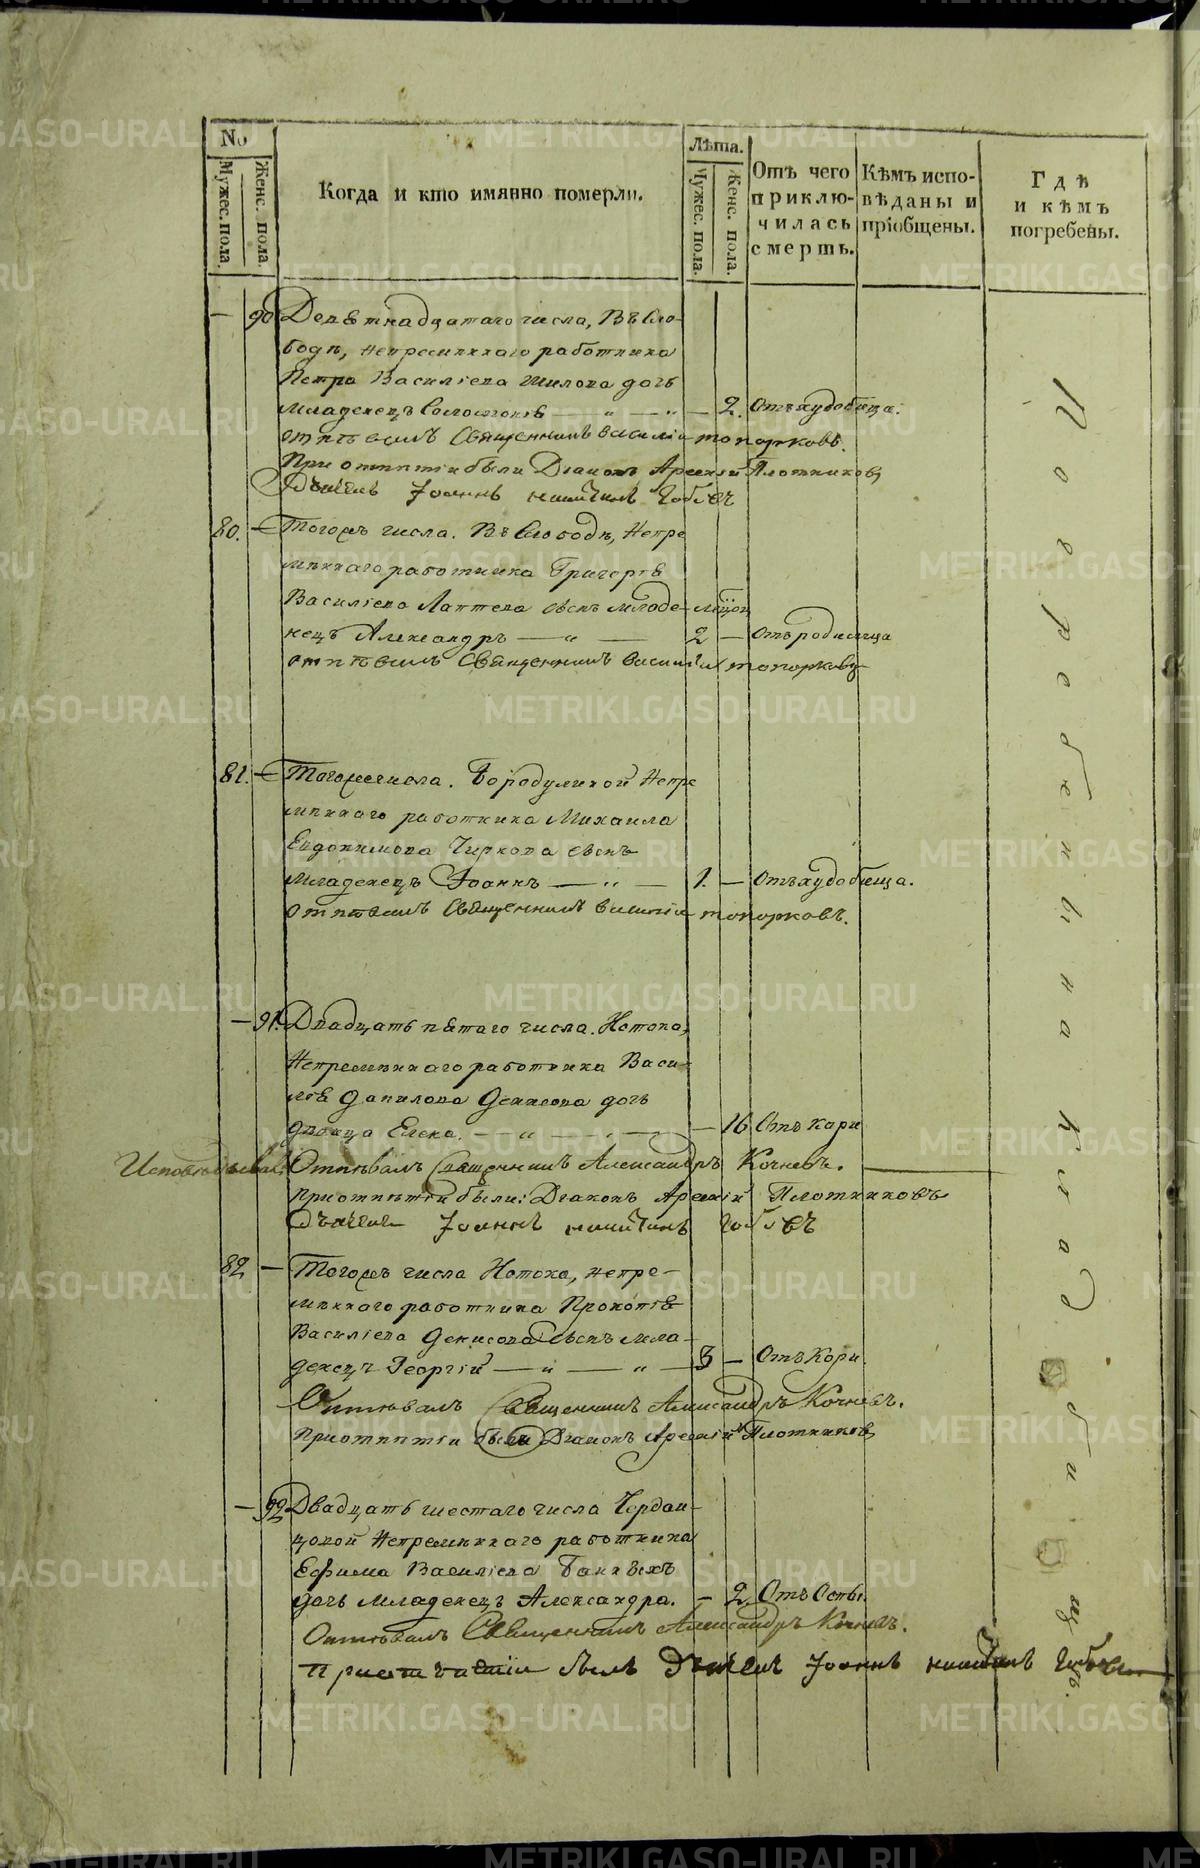 No
Мужес. пола.
Женс. пола.
Когда и кто имянно померли.
Лѣта.
Мужес. пола.
Женс. пола.
Отъ чего приклю-чилась смерть.
Кѣмъ испо-вѣданы и пріобщены.
Гдѣ и кѣмъ погребены.
— 90 Девятнадцатаго числа, Въ Сло-
бодѣ, непремѣннаго работника
Петра Васильева Шилова дочь
младенецъ Соломонія — „ — „ — 2. Отъ худобища.
отпѣвалъ Священникъ Василій топорковъ.
При отпѣтіи были Діаконъ Арсеній Плотниковъ,
Дьячекъ Іоаннъ никитинъ
80. — Тогожъ числа. Въ Слободѣ, Непре
мѣннаго работника Григорья
Васильева Лаптева сынъ младе-
нецъ Александръ — „ — 2 — Отъ родимца
отпѣвалъ Священникъ Василій топорковъ
81. — Тогожъ числа. Бородулиной Непре
мѣннаго работника Михаила
Евдокимова Чиркова сынъ
Младенецъ Іоаннъ — „ — 1. — Отъ худобища.
отпѣвалъ Священникъ Василій топорковъ.
— 91. Двадцать пятаго числа. Истока,
Непремѣннаго работника Васи-
лья Данилова Денисова дочь
дѣвица Елена. — „ — 16 Отъ Кори
Исповѣдывалъ Отпѣвалъ Священникъ Александръ Кочневъ.
приотпѣтіи были: Діаконъ Арсеній Плотниковъ
Дьячекъ Іоаннъ никитинъ
82 — Тогожъ числа Истока, непре-
мѣннаго работника Прокопья
Васильева Денисова сынъ мла-
денецъ Георгій — „ — „ — 3 — Отъ Кори.
Отпѣвалъ Священникъ Александръ Кочневъ.
Приотпѣтіи былъ Діаконъ Арсеній Плотниковъ
— 92 Двадцать шестаго числа
Непремѣннаго работника
Ефима Васильева Банныхъ
дочь младенецъ Александра. — 2 Отъ Оспы.
Отпѣвалъ Священникъ Александръ Кочневъ.
приотпѣтіи былъ Дьячекъ Іоаннъ никитинъ
Погребены на Кладбищѣ.
METRIKI.GASO-URAL.RU